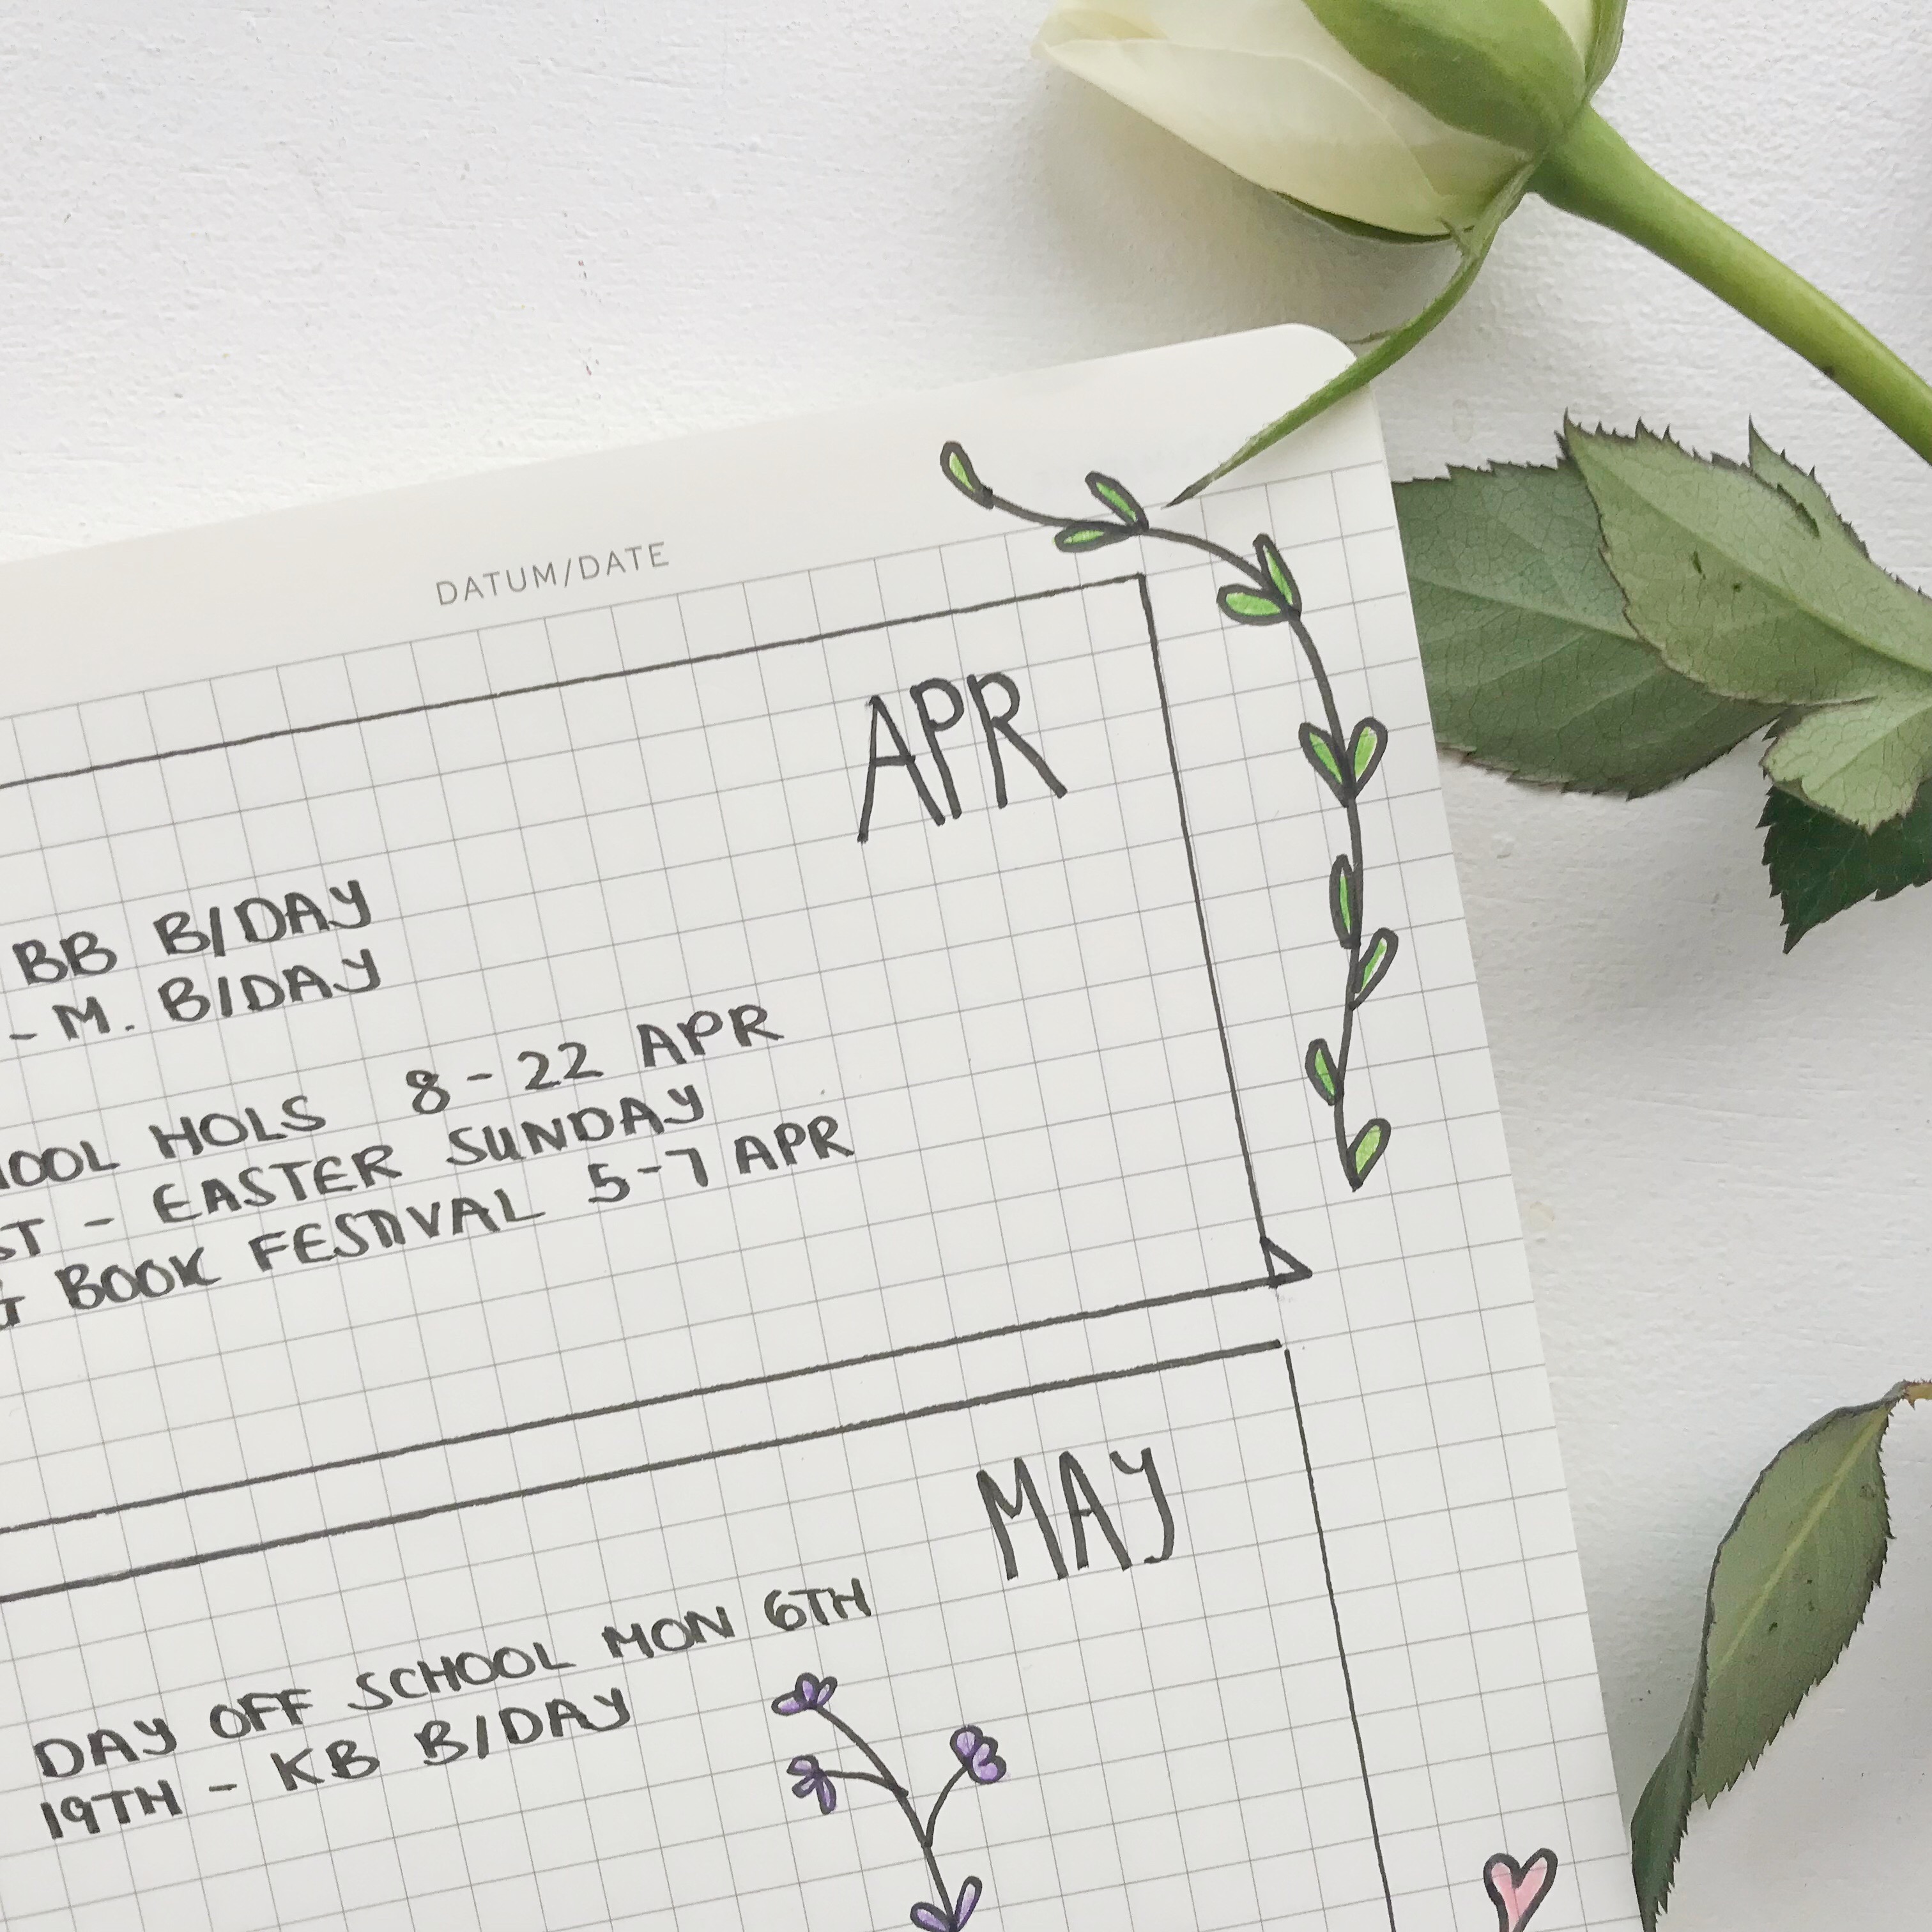 DATUM/DATE
APR
BB B/DAY
- M. B/DAY
HOLS 8-22 APR
- EASTER SUNDAY
BOOK FESTIVAL 5-7 APR
MAY
DAY OFF SCHOOL MON 6TH
19TH - KB B/DAY